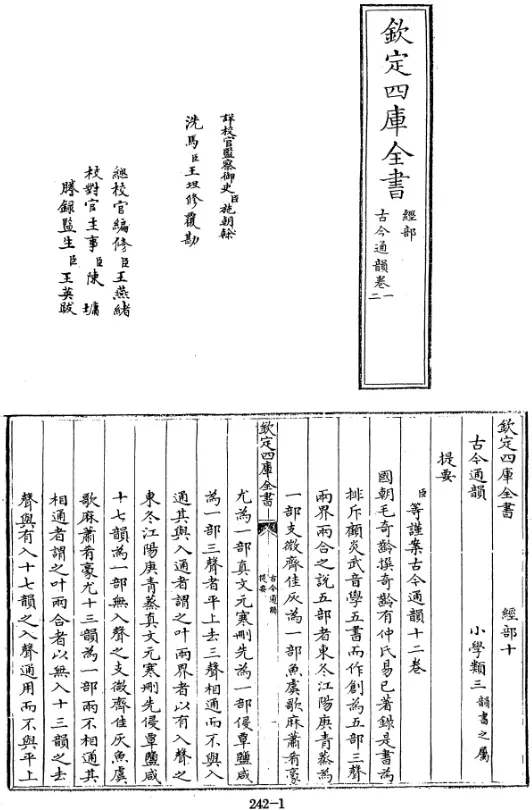 欽定四庫全書
經部
古今通韻卷一
二
詳校官監察御史臣施朝幹
洗馬臣王坦修覆勘
總校官編修臣王燕緒
校對官主事臣陳墉
謄録監生臣王英
欽定四庫全書
經部十
古今通韻
小學類三韻書之屬
提要
臣等謹案古今通韻十二卷
國朝毛奇齡撰奇齡有仲氏易已著録是書為
排斥顧炎武音學五書而作創為五部三聲
兩界兩合之説五部者東冬江陽庚青蒸為
一部支微齊佳灰為一部魚虞歌麻蕭肴豪
欽定四庫全書
古今通韻
提要
尤為一部真文元寒刪先為一部侵覃鹽咸
為一部三聲者平上去三聲相通而不與入
通其與入通者謂之叶兩界者以有入聲之
東冬江陽庚青蒸真文元寒刪先侵覃鹽咸
十七韻為一部無入聲之支微齊佳灰魚虞
歌麻蕭肴豪尤十三韻為一部兩不相通其
相通者謂之叶兩合者以無入十三韻之去
聲與有入十七韻之入聲通用而不與平上
242-1